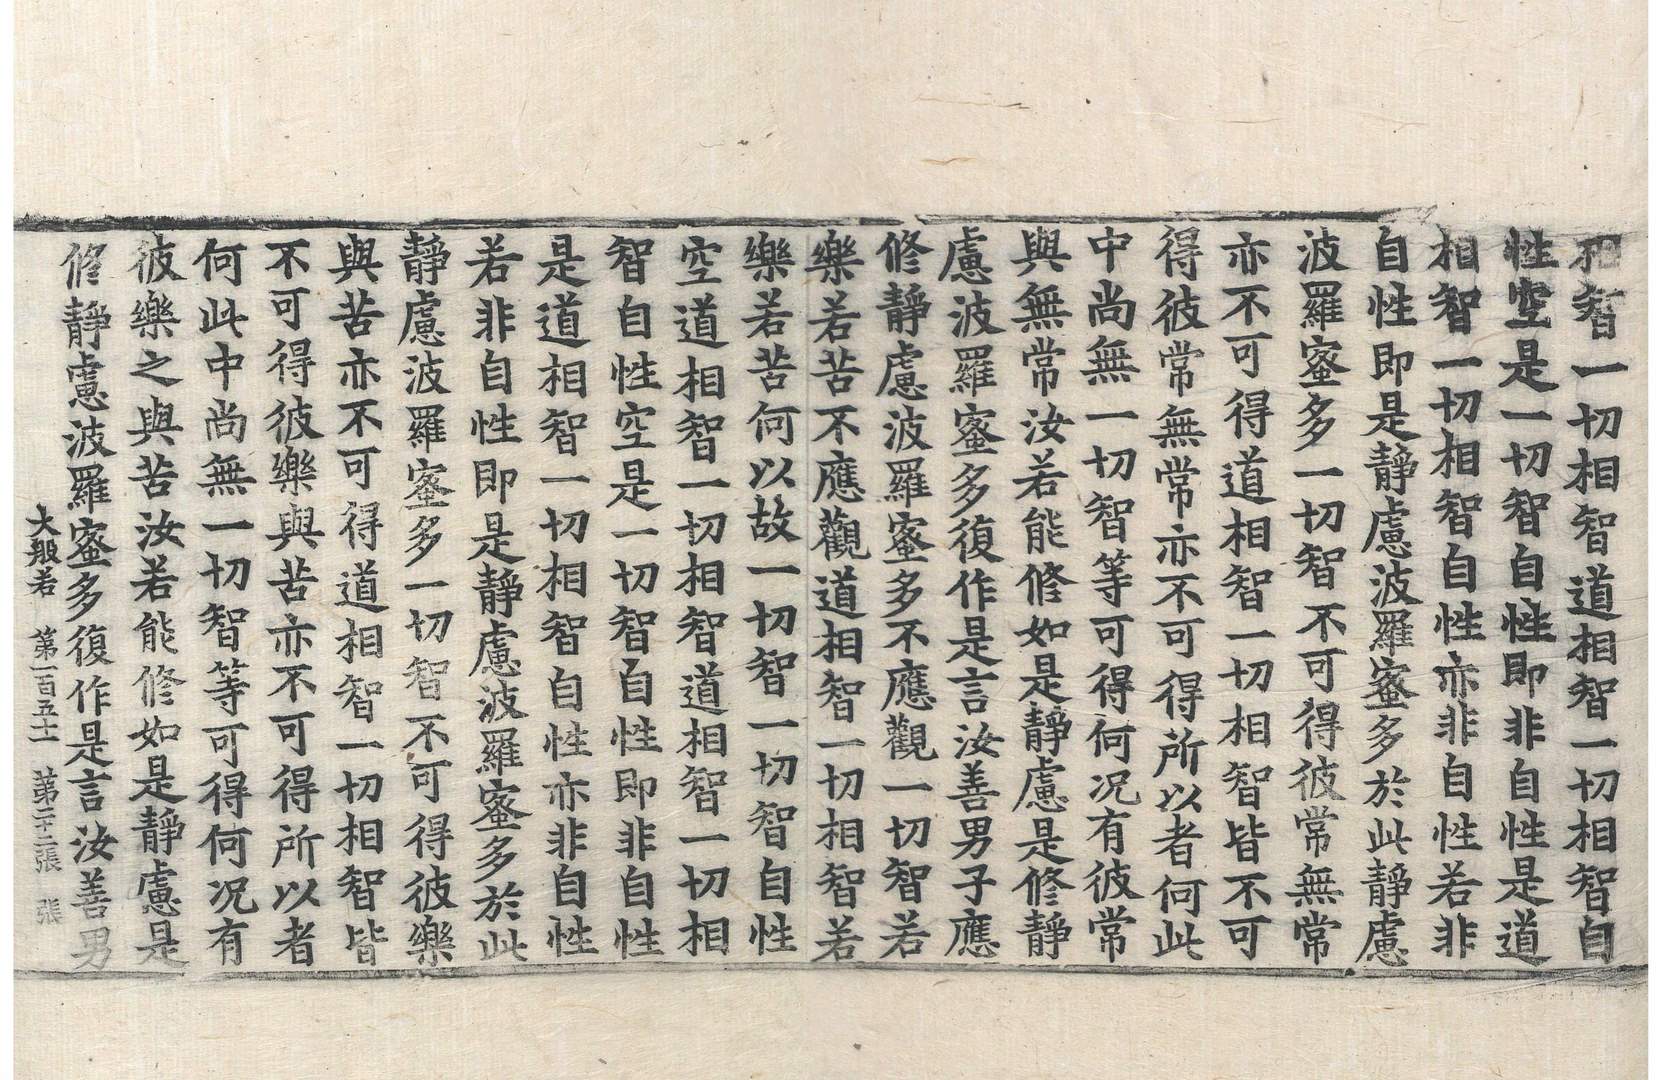 相智一切相智道相智一切相智自
性空是一切智自性即非自性是道
相智一切相智自性亦非自性若非
自性即是靜慮波羅蜜多於此靜慮
波羅蜜多一切智不可得彼常無常
亦不可得道相智一切相智皆不可
得彼常無常亦不可得所以者何此
中尚無一切智等可得何况有彼常
與無常汝若能修如是靜慮是修靜
慮波羅蜜多復作是言汝善男子應
修靜慮波羅蜜多不應觀一切智若
樂若苦不應觀道相智一切相智若
樂若苦何以故一切智一切智自性
空道相智一切相智道相智一切相
智自性空是一切智自性即非自性
是道相智一切相智自性亦非自性
若非自性即是靜慮波羅蜜多於此
靜慮波羅蜜多一切智不可得彼樂
與苦亦不可得道相智一切相智皆
不可得彼樂與苦亦不可得所以者
何此中尚無一切智等可得何况有
彼樂之與苦汝若能修如是靜慮是
修靜慮波羅蜜多復作是言汝善男
大般若 第一百五十一 第二十二張 張